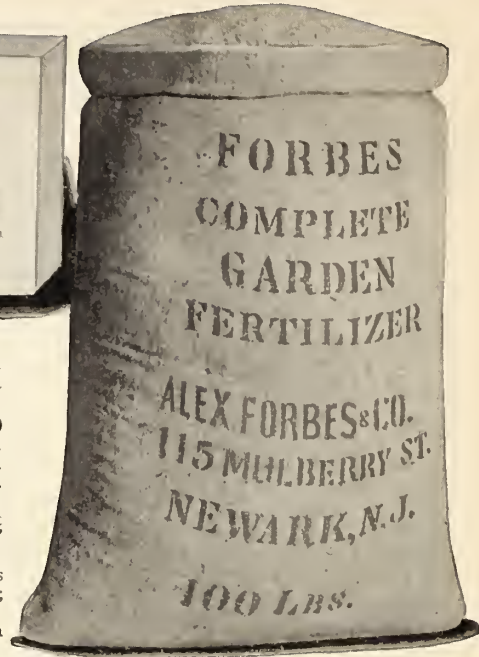 FORBES
COMPLETE
GARDEN
FERTILIZER
ALEX FORBES & CO.
115 MULBERRY ST.
NEWARK, N.J.
100 LBS.